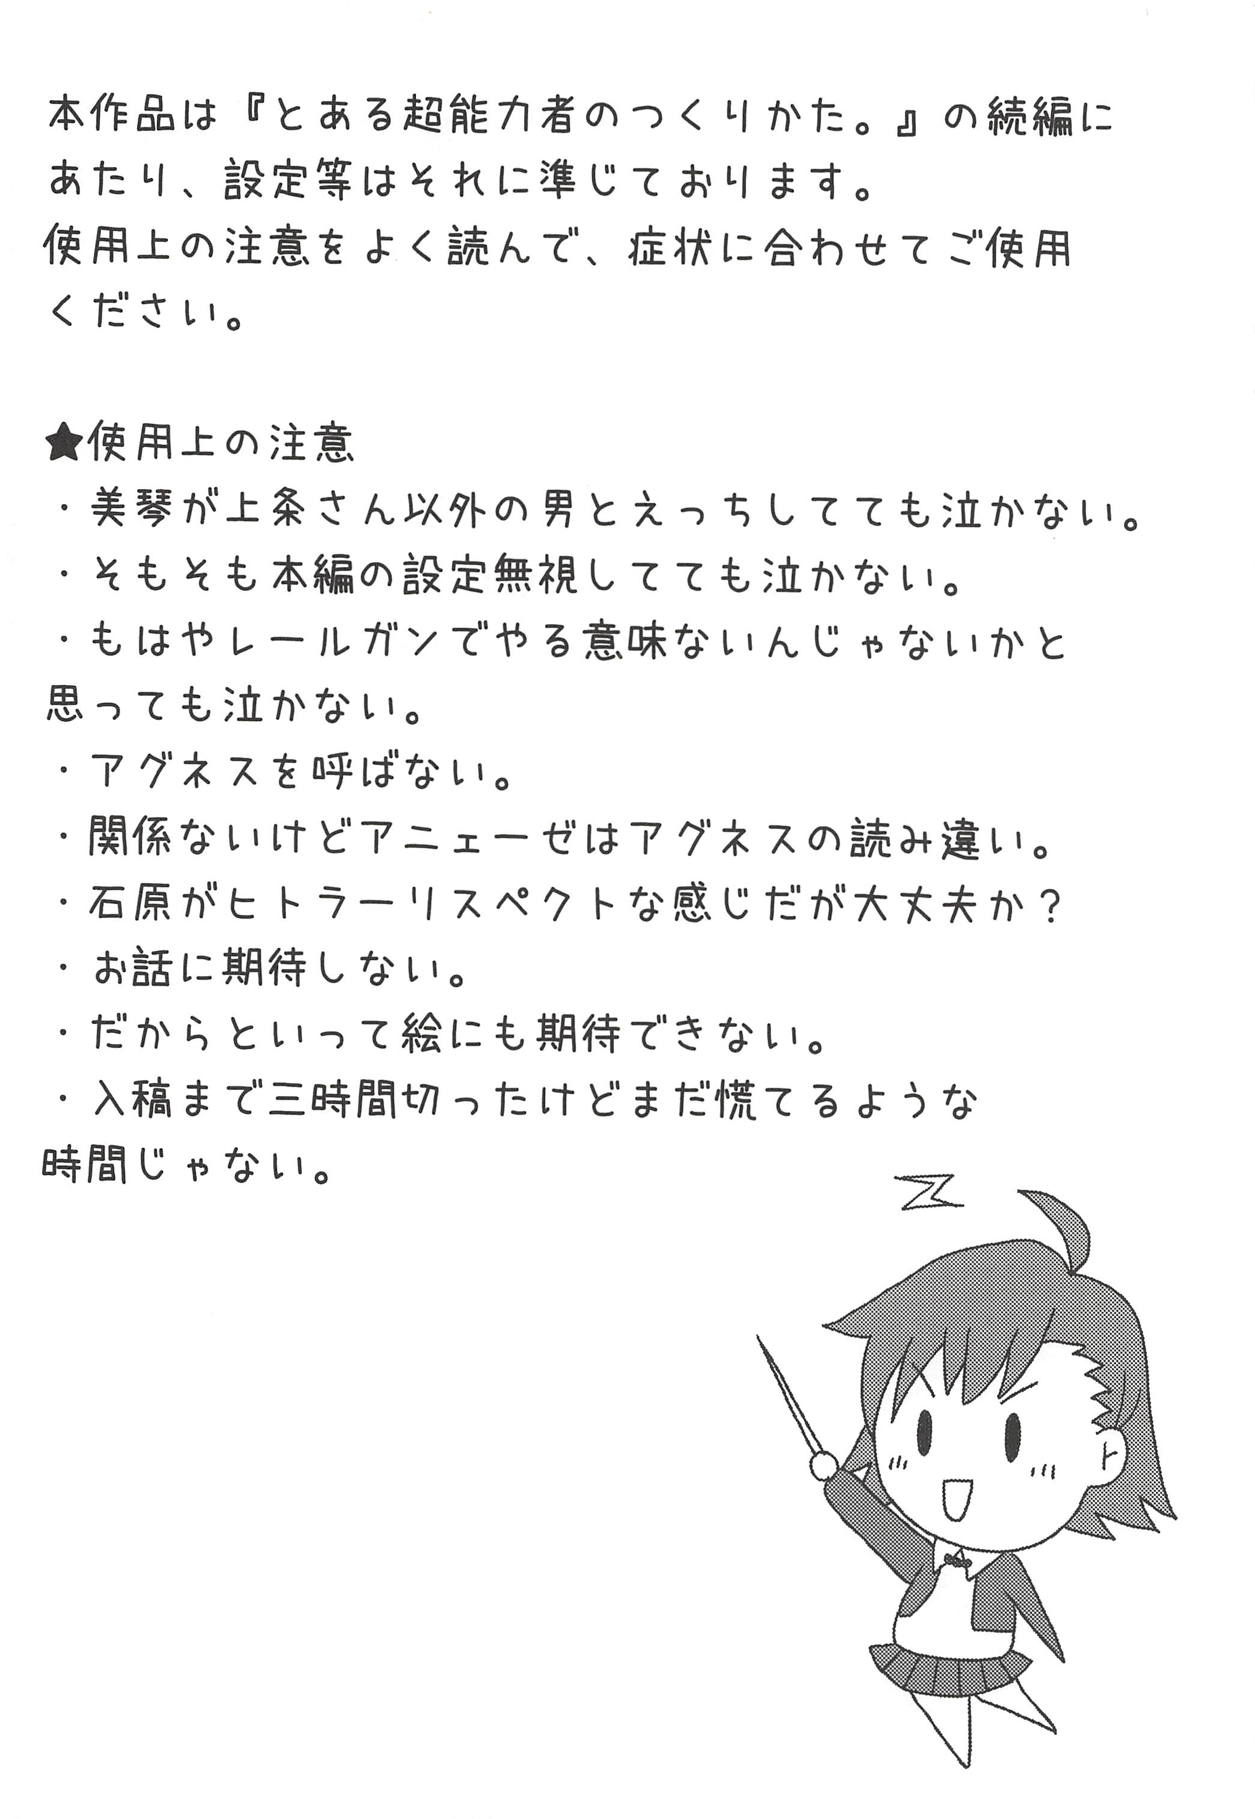 本作品は『とある超能力者のつくりかた。』の続編に
あたり、設定等はそれに準じております。
使用上の注意をよく読んで、症状に合わせてご使用
ください。
★使用上の注意
・美琴が上条さん以外の男とえっちしてても泣かない。
・そもそも本編の設定無視してても泣かない。
・もはやレールガンでやる意味ないんじゃないかと
思っても泣かない。
・アグネスを呼ばない。
・関係ないけどアニェーゼはアグネスの読み違い。
・石原がヒトラーリスペクトな感じだが大丈夫か？
・お話に期待しない。
・だからといって絵にも期待できない。
・入稿まで三時間切ったけどまだ慌てるような
時間じゃない。